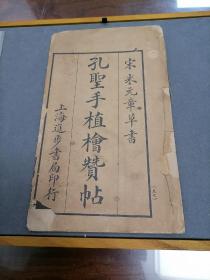 宋米元章草書
孔聖手植檜贊帖
上海進步書局印行